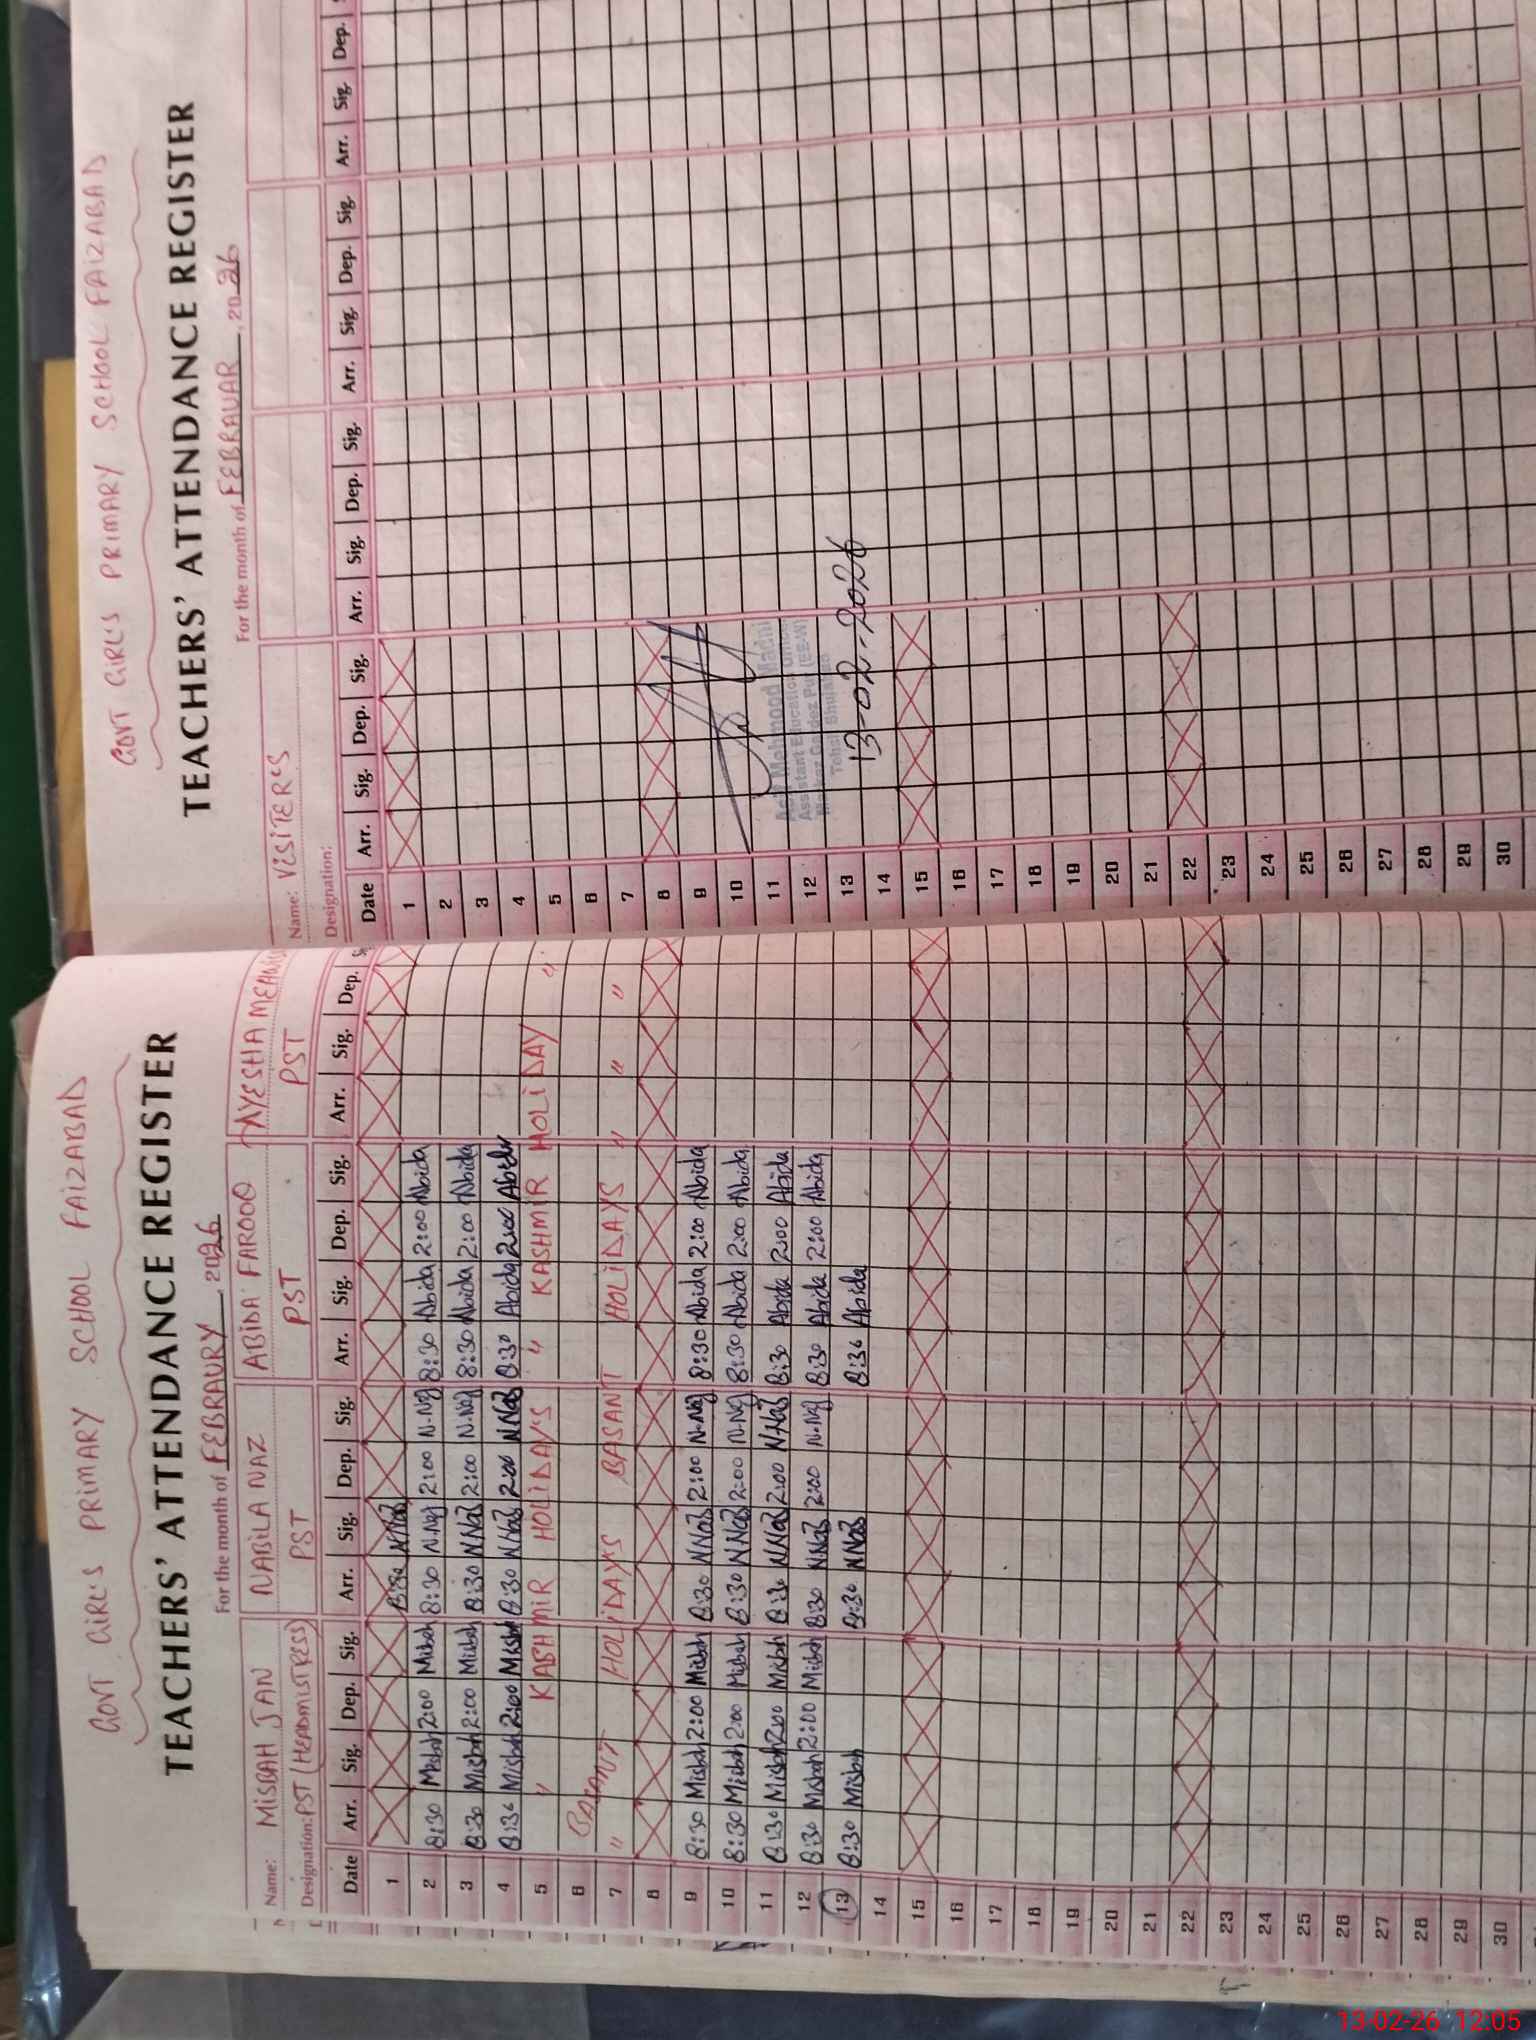 GOVT GIRL'S PRIMARY SCHOOL FAIZABAD
TEACHERS' ATTENDANCE REGISTER
For the month of FEBRAURY, 2026
Name: MISBAH JAN NABILA NAZ ABIDA FAROOQ AYESHA
Designation: PST (HEADMISTRESS) PST PST PST
Date Arr. Sig. Dep. Sig. Arr. Sig. Dep. Sig. Arr. Sig. Dep. Sig. Arr. Sig. Dep.
1 8:30 N Naz
2 8:30 Misbah 2:00 Misbah 8:30 N.Naz 2:00 N.Naz 8:30 Abida 2:00 Abida
3 8:30 Misbah 2:00 Misbah 8:30 N Naz 2:00 N.Naz 8:30 Abida 2:00 Abida
4 8:30 Misbah 2:00 Misbah 8:30 N Naz 2:00 N Naz 8:30 Abida 2:00 Abida
5 " KASHMIR HOLIDAY'S " KASHMIR HOLIDAY "
6 BASANT
7 " HOLIDAY'S BASANT HOLIDAYS " " "
8
9 8:30 Misbah 2:00 Misbah 8:30 N Naz 2:00 N.Naz 8:30 Abida 2:00 Abida
10 8:30 Misbah 2:00 Misbah 8:30 N Naz 2:00 N.Naz 8:30 Abida 2:00 Abida
11 8:30 Misbah 2:00 Misbah 8:30 N Naz 2:00 N Naz 8:30 Abida 2:00 Abida
12 8:30 Misbah 2:00 Misbah 8:30 N Naz 2:00 N.Naz 8:30 Abida 2:00 Abida
13 8:30 Misbah 8:30 N Naz 8:30 Abida
14
15
16
17
18
19
20
21
22
23
24
25
26
27
28
29
30
GOVT GIRL'S PRIMARY SCHOOL FAIZABAD
TEACHERS' ATTENDANCE REGISTER
For the month of FEBRAUAR, 2026
Name: VISITER'S
Designation:
Date Arr. Sig. Dep. Sig. Arr. Sig. Dep. Sig. Arr. Sig. Dep. Sig. Arr. Sig. Dep.
1
2
3
4
5
6
7
8
9
10
11 Mehmood Madni
12 Assistant Education
13 13-02-2026
14
15
16
17
18
19
20
21
22
23
24
25
26
27
28
29
30
13-02-26 12:05